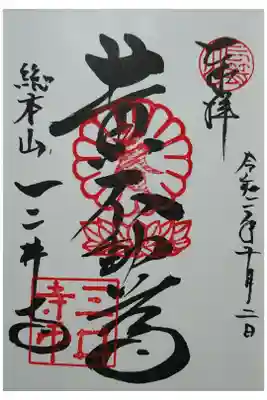 奉拝
令和二年十月二日
黄不動尊
総本山 三井寺
三井寺印